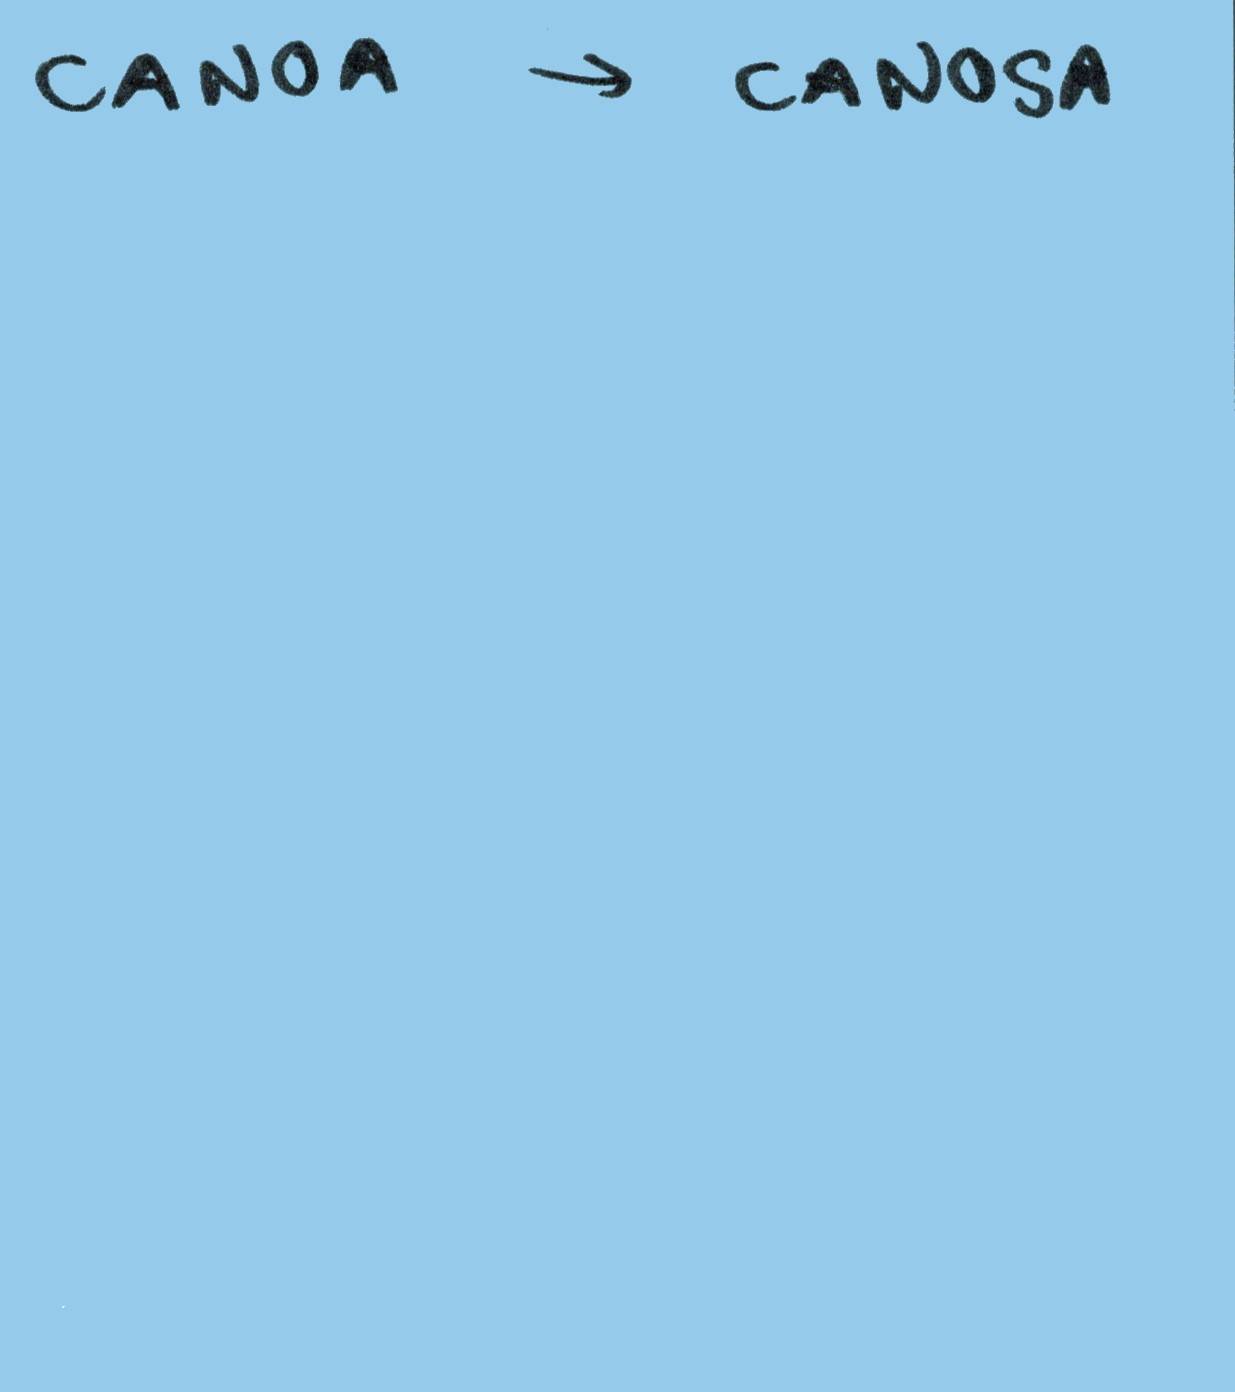 CANOA → CANOSA